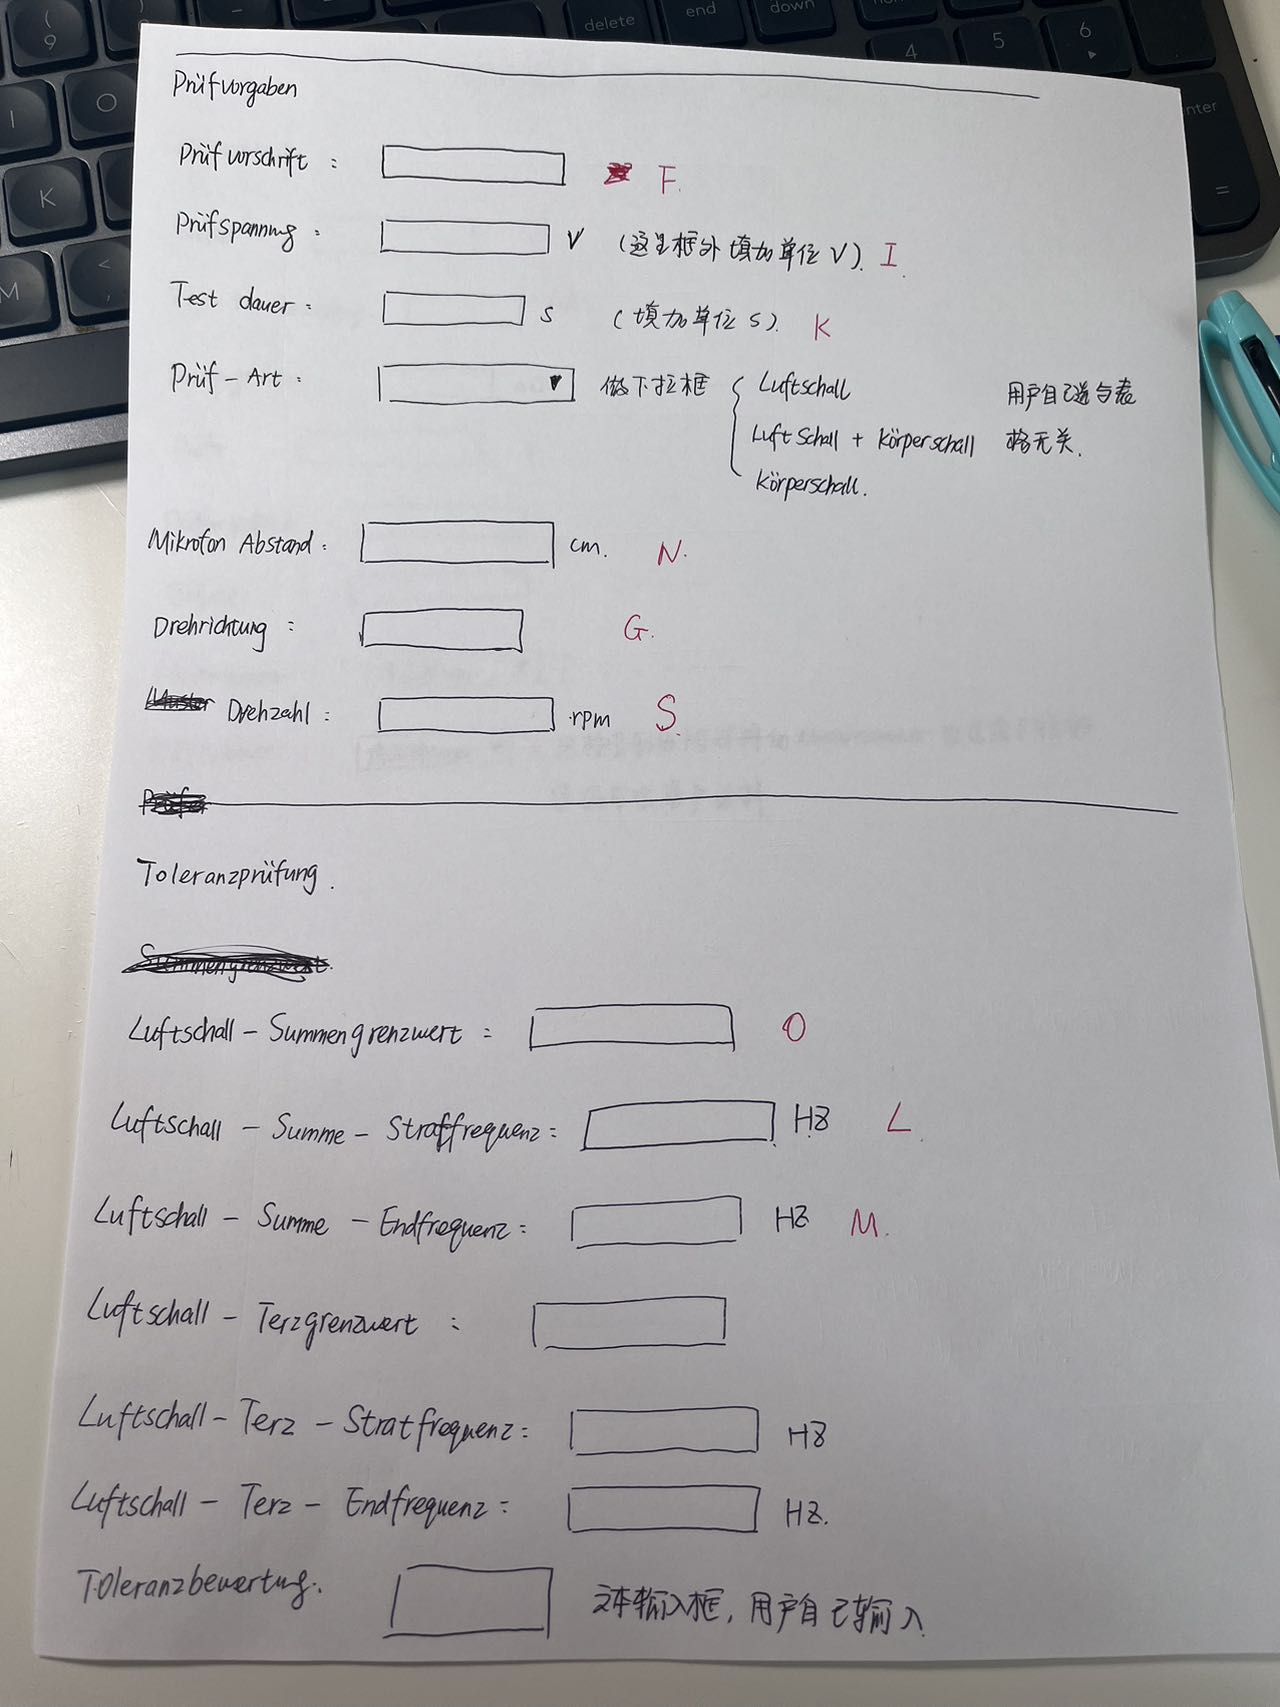 ( 9
delete
end
down
4
5
6
I
O
enter
K
=
M
<
,
Prüfvorgaben
Prüfvorschrift : F.
Prüfspannung : V (这里框外填加单位 V). I.
Test dauer : s (填加单位 s). K
Prüf - Art : 做下拉框 { Luftschall 用户自己选与表
Luftschall + Körperschall 格无关.
Körperschall.
Mikrofon Abstand : cm. N.
Drehrichtung : G.
Drehzahl : rpm S.
Toleranzprüfung.
Luftschall - Summengrenzwert : O
Luftschall - Summe - Straffrequenz : HZ L.
Luftschall - Summe - Endfrequenz : HZ M.
Luftschall - Terzgrenzwert :
Luftschall - Terz - Stratfrequenz : HZ
Luftschall - Terz - Endfrequenz : HZ.
Toleranzbewertung. 文本输入框, 用户自己输入